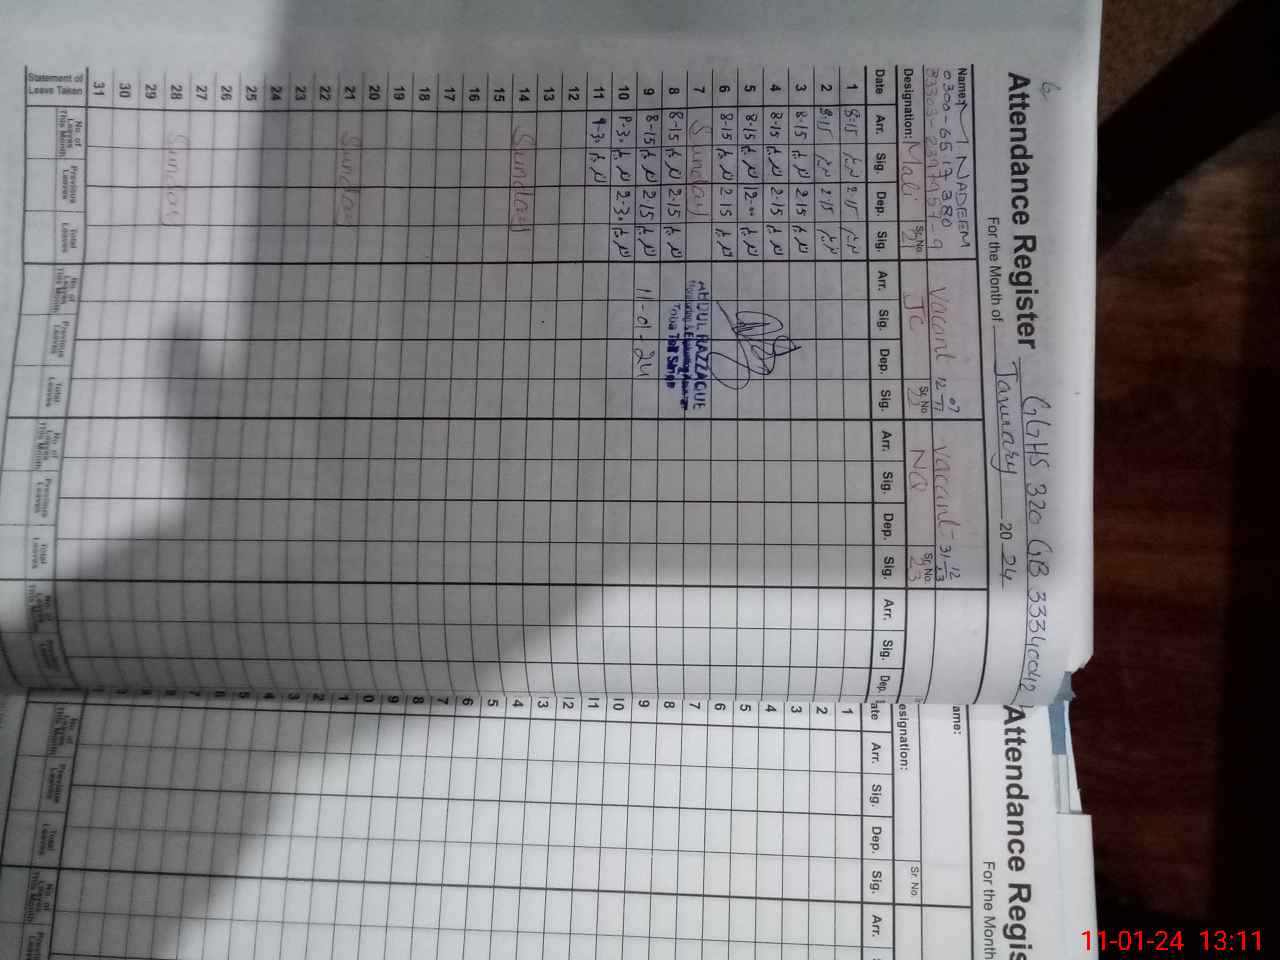 Attendance Register GGHS 320 GB 33340042
For the Month of January 2024
Name: M. NADEEM
0300-6517380
Vacant 07
12-11
Vacant 12
31-13
Designation: Mali Sr. No. 21
JC Sr. No. 22
NQ Sr. No. 23
Date Arr. Sig. Dep. Sig. Arr. Sig. Dep. Sig. Arr. Sig. Dep. Sig. Arr. Sig. Dep.
1 8-15 2-15
2 8-15 2-15
3 8-15 2-15
4 8-15 2-15
5 8-15 12-00
6 8-15 2-15
7 Sunday
8 8-15 2-15
9 8-15 2-15
10 2-30
11 9-30
12
13
14 Sunday
15
16
17
18
19
20
21 Sunday
22
23
24
25
26
27
28 Sunday
29
30
31
Statement of Leave Taken No. of Leaves This Month Previous Leaves Total Leaves No. of Leaves This Month Previous Leaves Total Leaves No. of Leaves This Month Previous Leaves Total Leaves No. of Leaves This Month Previous Leaves
ABDUL RAZZAQUE
Monitoring & Evaluation Assistant
Toba Tek Singh
11-01-24
Attendance Regis
For the Month
ame:
esignation: Sr. No.
ate Arr. Sig. Dep. Sig. Arr.
1
2
3
4
5
6
7
8
9
10
11
12
13
4
5
6
7
8
9
0
1
2
3
4
5
6
7
8
9
No. of Leaves This Month Previous Leaves Total Leaves No. of Leaves This Month Previous Leaves
11-01-24 13:11